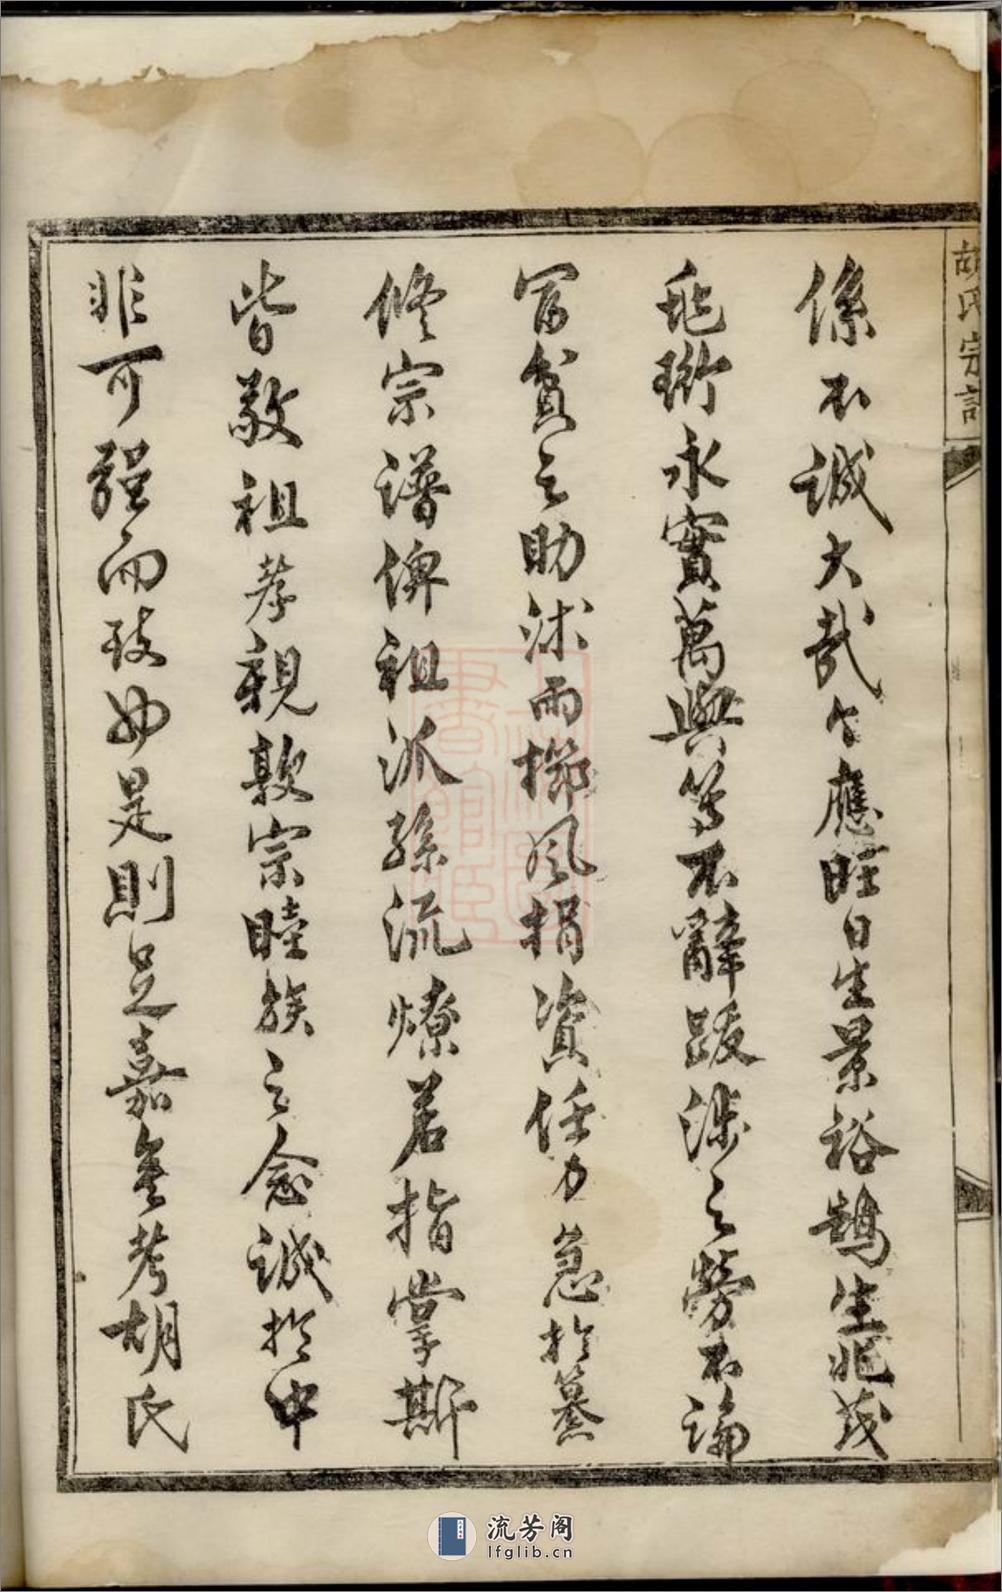 胡氏宗譜
係不誠大哉今應旺日生景裕鵠生兆茂
兆珩永實萬興等不辭跋涉之勞不論
富貧之助沐雨櫛風捐資任力急於纂
修宗譜俾祖派孫流燎若指掌斯
皆敬祖孝親敦宗睦族之念誠於中
非可強而致也是則足嘉矣考胡氏
流芳阁
lfglib.cn